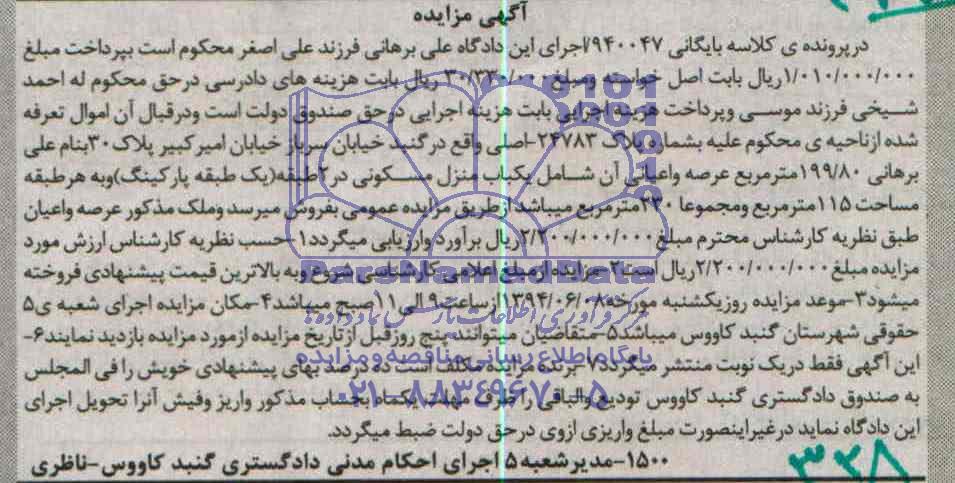 آگهی مزایده
درپرونده ی کلاسه بایگانی ۹۴۰۰۴۷/اجرای این دادگاه علی برهانی فرزند علی اصغر محکوم است بپرداخت مبلغ
۱/۰۱۰/۰۰۰/۰۰۰ریال بابت اصل خواسته ومبلغ ۳۰/۳۳۰/۰۰۰ ریال بابت هزینه های دادرسی درحق محکوم له احمد
شیخی فرزند موسی وپرداخت هزینه اجرایی بابت هزینه اجرایی درحق صندوق دولت است ودرقبال آن اموال تعرفه
شده ازناحیه ی محکوم علیه بشماره پلاک ۲۴۷۸۳-اصلی واقع درگنبد خیابان سرباز خیابان امیرکبیر پلاک ۳۰بنام علی
برهانی ۱۹۹/۸۰مترمربع عرصه واعیانی آن شامل یکباب منزل مسکونی در۲طبقه(یک طبقه پارکینگ)وبه هرطبقه
مساحت ۱۱۵مترمربع ومجموعا ۲۳۰مترمربع میباشد ازطریق مزایده عمومی بفروش میرسد وملک مذکور عرصه واعیان
طبق نظریه کارشناس محترم مبلغ ۲/۲۰۰/۰۰۰/۰۰۰ریال برآورد وارزیابی میگردد۱-حسب نظریه کارشناس ارزش مورد
مزایده مبلغ ۲/۲۰۰/۰۰۰/۰۰۰ریال است۲-مزایده ازمبلغ اعلامی کارشناسی شروع وبه بالاترین قیمت پیشنهادی فروخته
میشود۳-موعد مزایده روزیکشنبه مورخه ۱۳۹۴/۰۶/۰۸ازساعت ۹ الی ۱۱صبح میباشد۴-مکان مزایده اجرای شعبه ی۵
حقوقی شهرستان گنبد کاووس میباشد۵-متقاضیان میتوانند پنج روزقبل ازتاریخ مزایده ازمورد مزایده بازدید نمایند۶-
این آگهی فقط دریک نوبت منتشر میگردد۷-برنده مزایده مکلف است ده درصد بهای پیشنهادی خویش را فی المجلس
به صندوق دادگستری گنبد کاووس تودیع والباقی را ظرف مهلت یکماه بحساب مذکور واریز وفیش آنرا تحویل اجرای
این دادگاه نماید درغیراینصورت مبلغ واریزی ازوی درحق دولت ضبط میگردد.
۱۵۰۰-مدیرشعبه ۵ اجرای احکام مدنی دادگستری گنبد کاووس-ناظری
۳۳۸
ParsNamadData
مرکز فرآوری اطلاعات پارس نماد داده ها
پایگاه اطلاع رسانی مناقصه و مزایده
۰۲۱-۸۸۳۴۹۶۷۰-۵